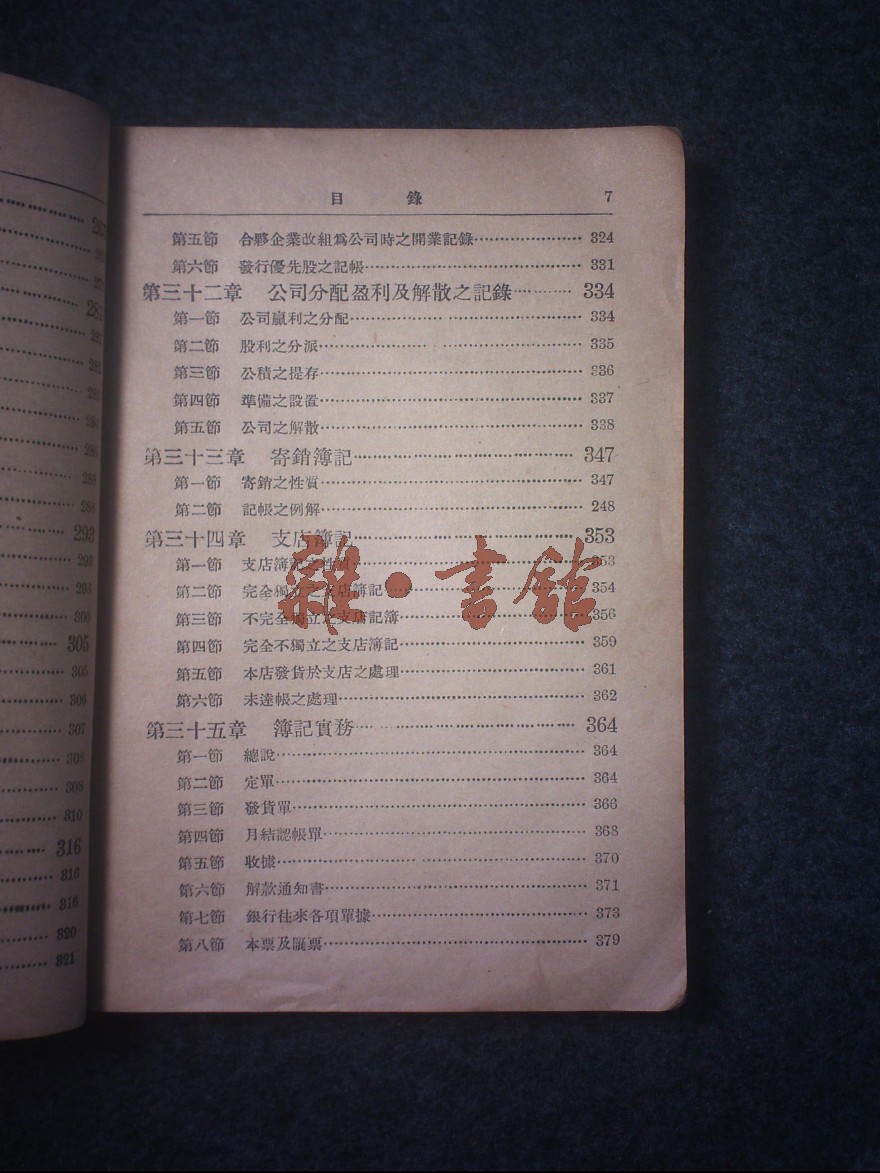 目 錄 7
第五節 合夥企業改組爲公司時之開業記錄 324
第六節 發行優先股之記帳 331
第三十二章 公司分配盈利及解散之記錄 334
第一節 公司贏利之分配 334
第二節 股利之分派 335
第三節 公積之提存 336
第四節 準備之設置 337
第五節 公司之解散 338
第三十三章 寄銷簿記 347
第一節 寄銷之性質 347
第二節 記帳之例解 248
第三十四章 支店簿記 353
第一節 支店簿記之性質 353
第二節 完全獨立之支店簿記 354
第三節 不完全獨立之支店記簿 356
第四節 完全不獨立之支店簿記 359
第五節 本店發貨於支店之處理 361
第六節 未達帳之處理 362
第三十五章 簿記實務 364
第一節 總說 364
第二節 定單 364
第三節 發貨單 366
第四節 月結認帳單 368
第五節 收據 370
第六節 解款通知書 371
第七節 銀行往來各項單據 373
第八節 本票及匯票 379
雜·書館
293
305
305
306
307
308
308
310
316
316
316
320
321